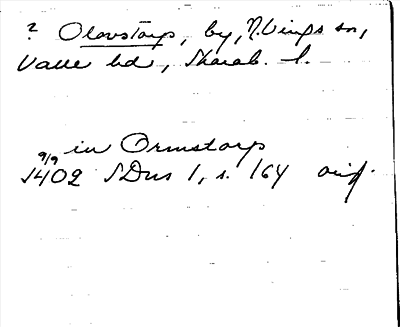 ? Olovstorp, by, N. Vings sn,
Valle hd, Skarab. l.
in Ormstorp
9/9
1402 SDns 1, s. 164 orig.